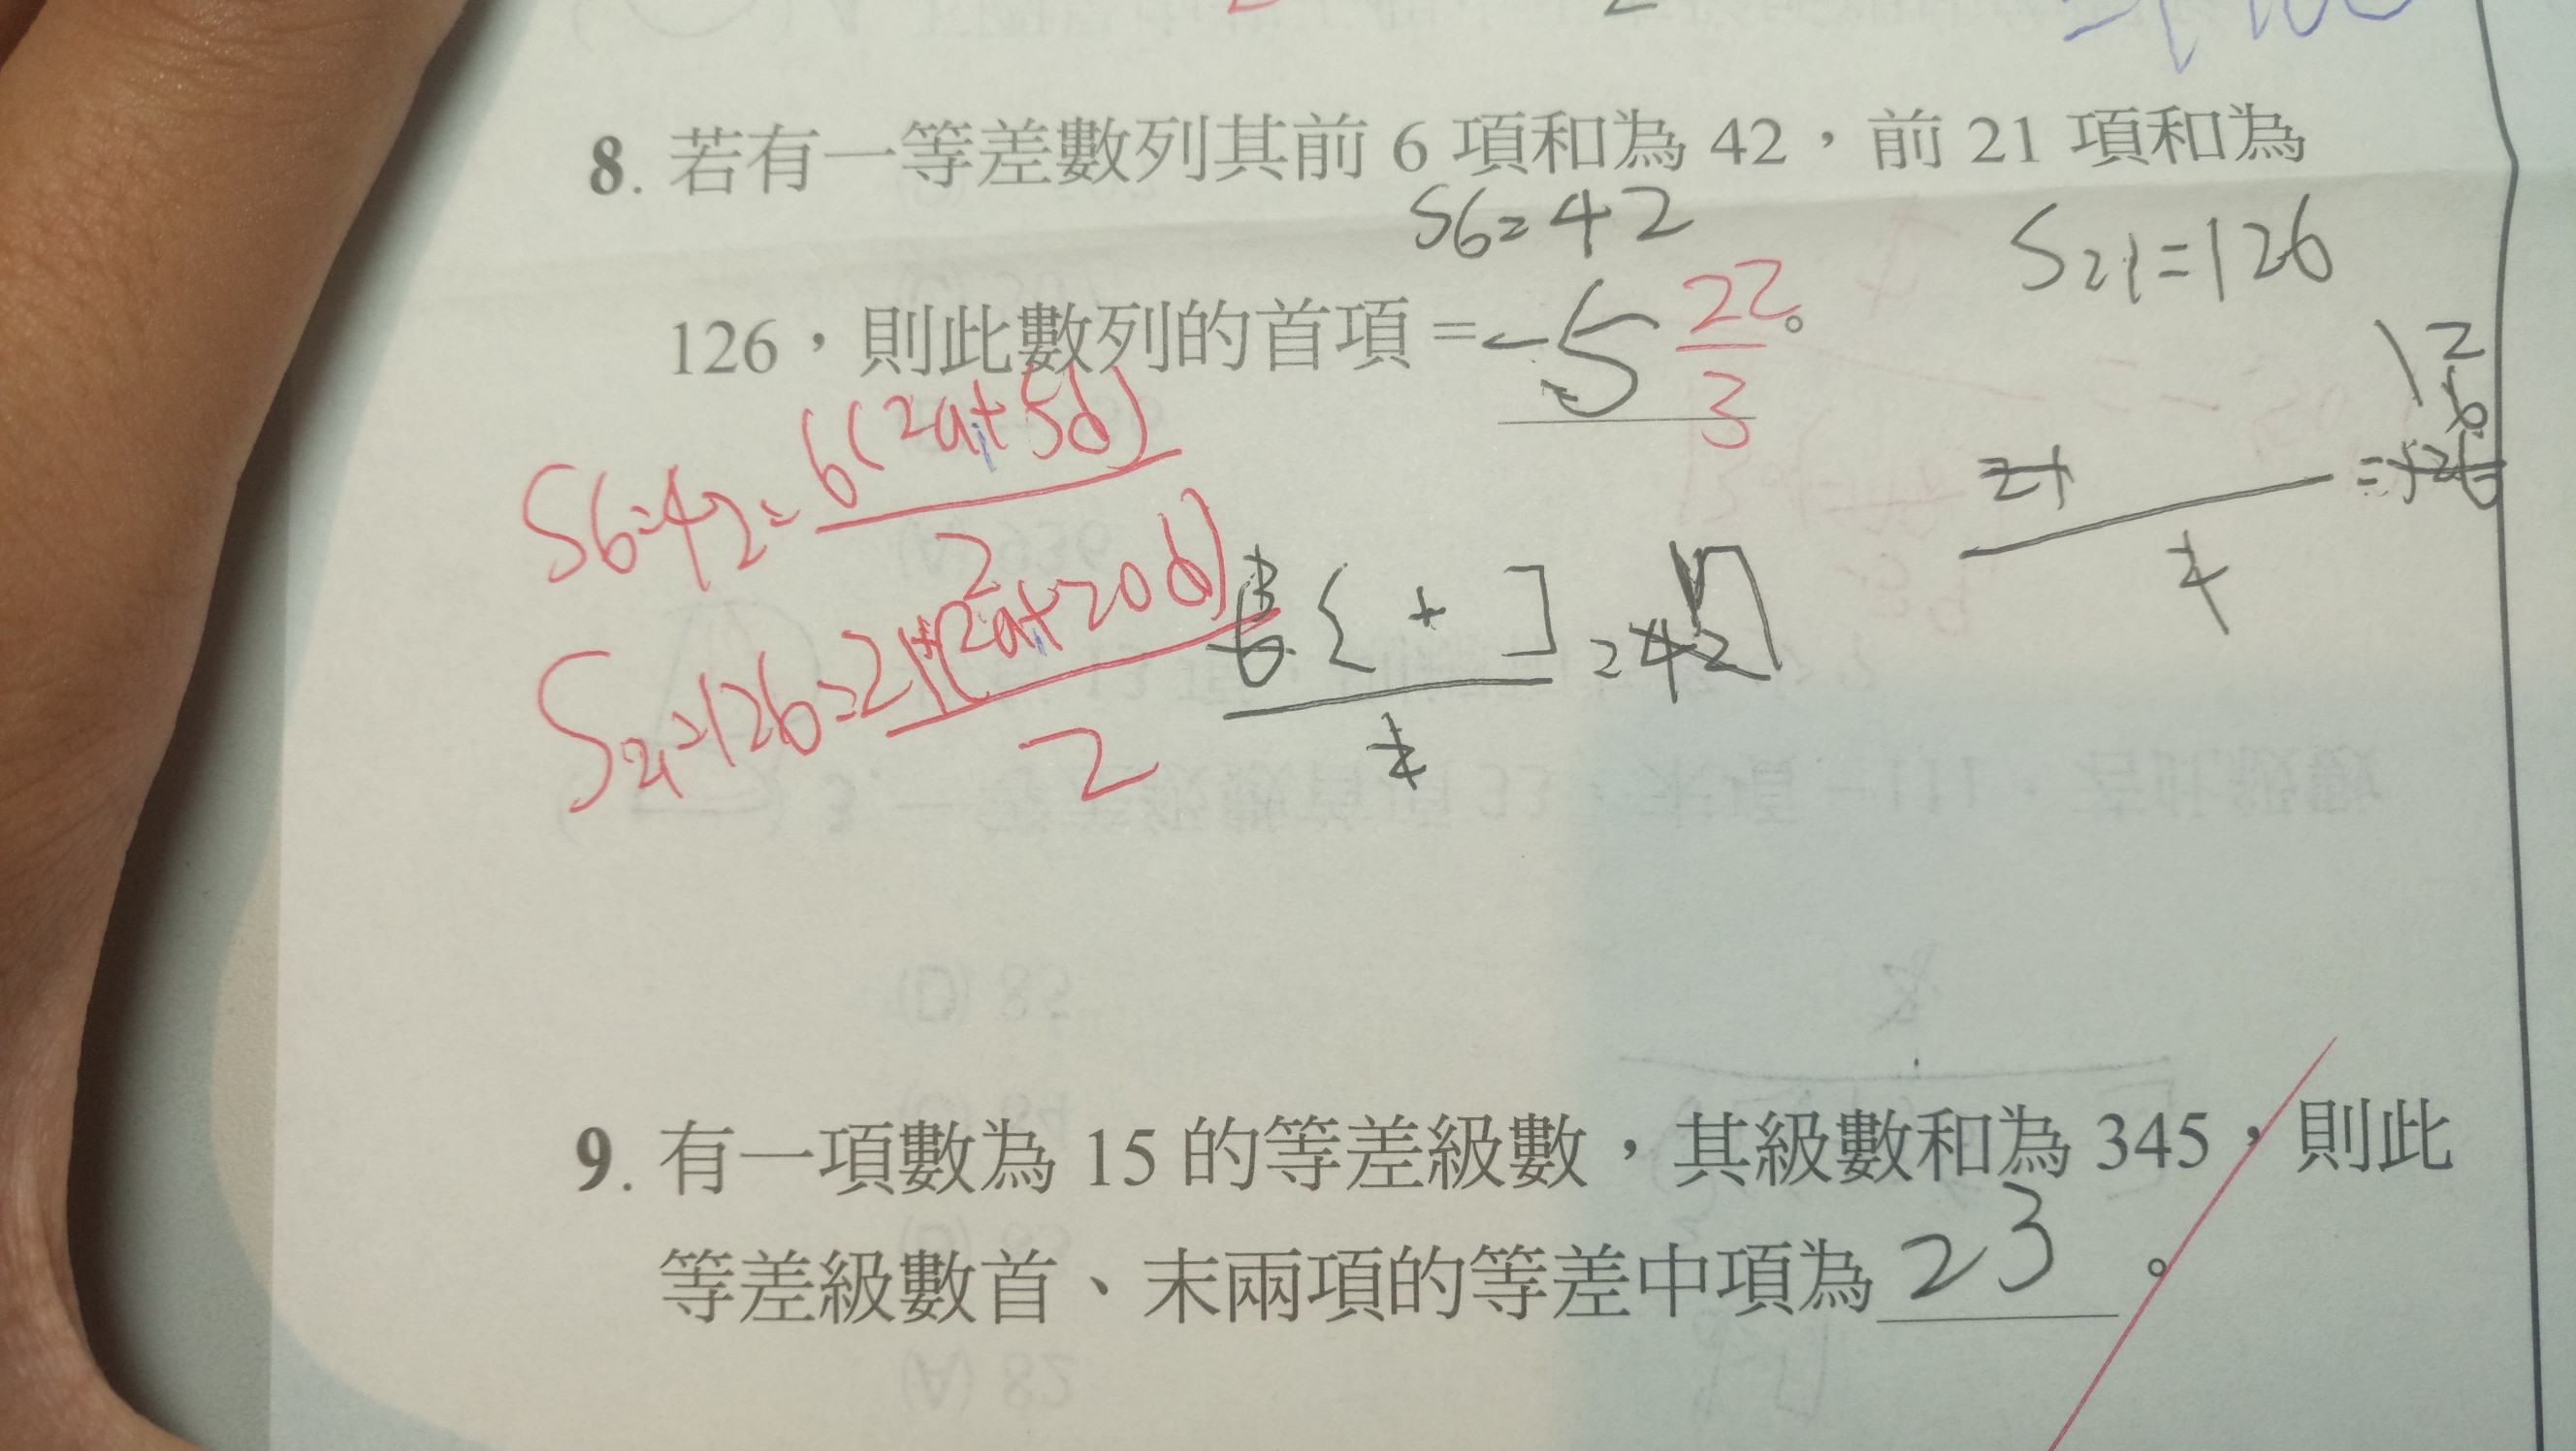 8. 若有一等差數列其前 6 項和為 42，前 21 項和為
S6=42
S21=126
126，則此數列的首項 = -5 22/3。
S6=42=6(2a1+5d)/2
S21=126=21(2a1+20d)/2
9. 有一項數為 15 的等差級數，其級數和為 345，則此
等差級數首、末兩項的等差中項為 23。